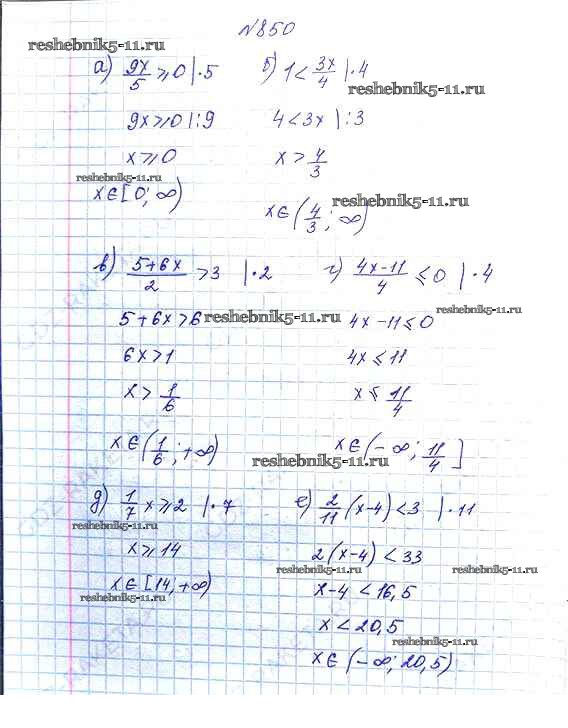 N850
reshebnik5-11.ru
а) 9x/5 ⩾ 0 |·5
9x ⩾ 0 |:9
x ⩾ 0
reshebnik5-11.ru
x ∈ [0; ∞)
б) 1 < 3x/4 |·4
reshebnik5-11.ru
4 < 3x |:3
x > 4/3
reshebnik5-11.ru
x ∈ (4/3; ∞)
в) (5+6x)/2 > 3 |·2
5+6x > 6
reshebnik5-11.ru
6x > 1
x > 1/6
x ∈ (1/6; +∞)
г) (4x-11)/4 ⩽ 0 |·4
reshebnik5-11.ru
4x-11 ⩽ 0
4x ⩽ 11
x ⩽ 11/4
x ∈ (-∞; 11/4]
reshebnik5-11.ru
д) 1/7 x ⩾ 2 |·7
reshebnik5-11.ru
x ⩾ 14
x ∈ [14; +∞)
reshebnik5-11.ru
е) 2/11 (x-4) < 3 |·11
2(x-4) < 33
reshebnik5-11.ru
reshebnik5-11.ru
x-4 < 16,5
x < 20,5
reshebnik5-11.ru
x ∈ (-∞; 20,5)
reshebnik5-11.ru